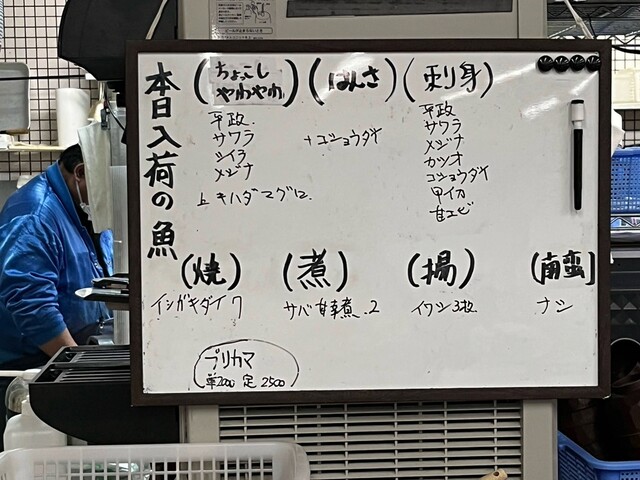 本日入荷の魚
(ちょこし
やわやわ)
平政
サワラ
シイラ
メジナ
上キハダマグロ
(はんさ)
+コショウダイ
(刺身)
平政
サワラ
メジナ
カツオ
コショウダイ
甲イカ
甘エビ
(焼)
イシガキダイ 7
(煮)
サバ甘辛煮.2
(揚)
イワシ3枚
(南蛮)
ナシ
ブリカマ
単2000 定2500